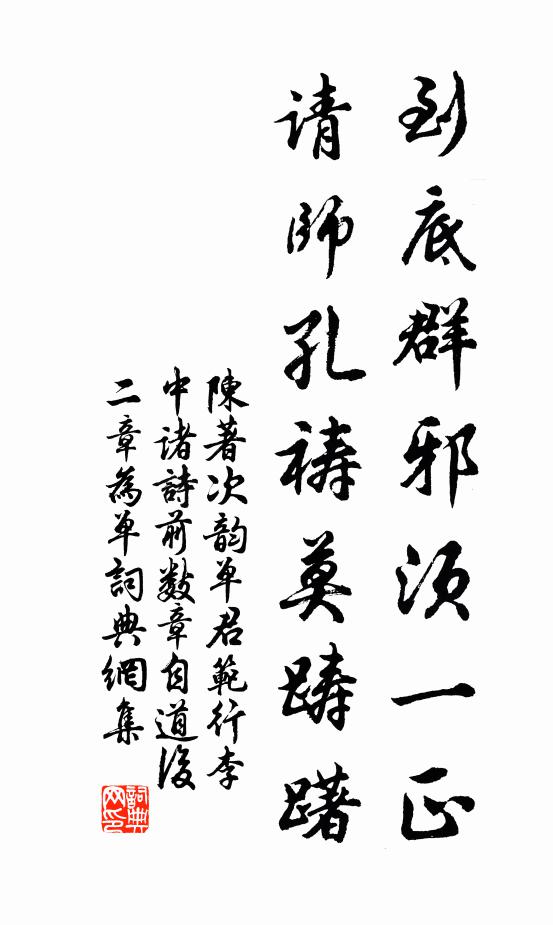 到底群邪须一正
请師孔祷莫踌躇
陳著次韵单君範行李
中诸詩前数章自道後
二章為单詞典網集
詞典网印